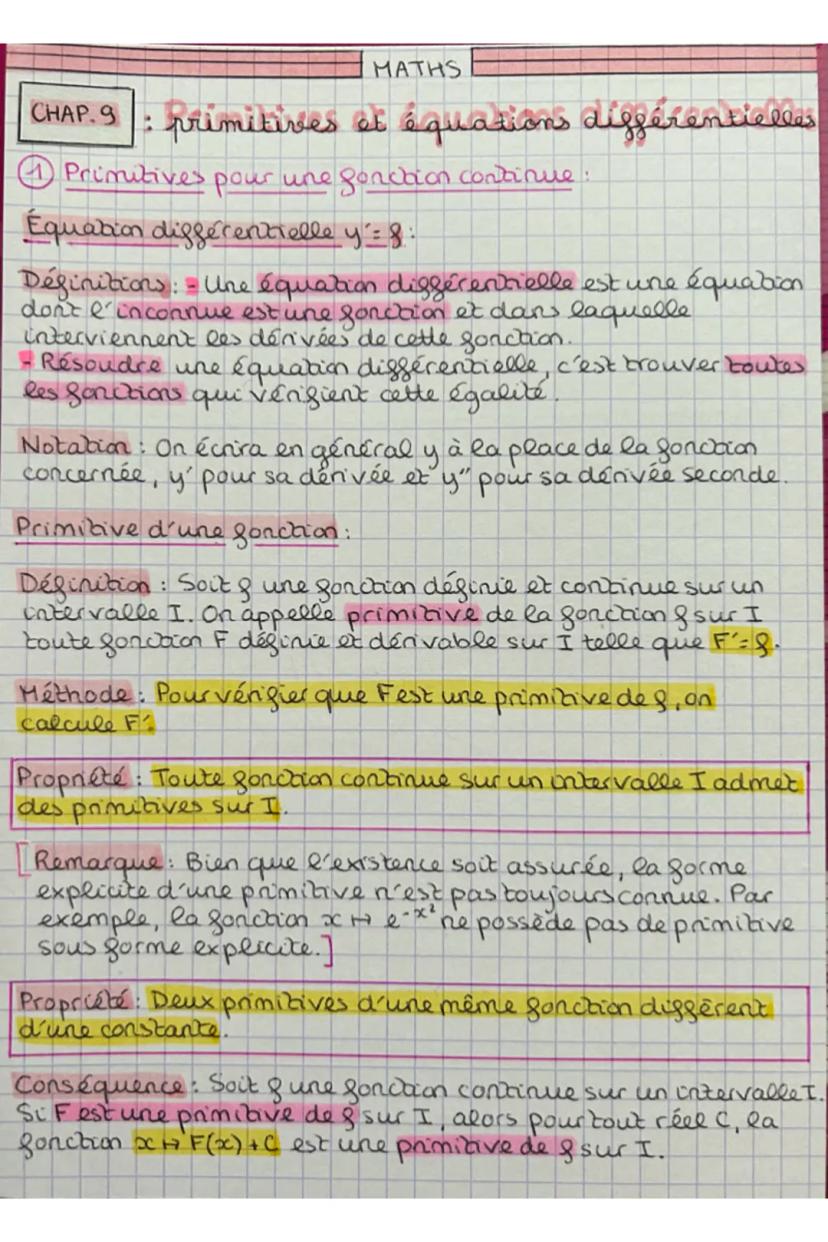 MATHS
CHAP. 9 : Primitives et équations différentielles
① Primitives pour une fonction continue :
Équation différentielle y'= f :
Définitions : - Une équation différentielle est une équation
dont l'inconnue est une fonction et dans laquelle
interviennent les dérivées de cette fonction.
- Résoudre une équation différentielle, c'est trouver toutes
les fonctions qui vérifient cette égalité.
Notation : On écrira en général y à la place de la fonction
concernée, y' pour sa dérivée et y" pour sa dérivée seconde.
Primitive d'une fonction :
Définition : Soit f une fonction définie et continue sur un
intervalle I. On appelle primitive de la fonction f sur I
toute fonction F définie et dérivable sur I telle que F'= f.
Méthode : Pour vérifier que F est une primitive de f, on
calcule F'.
Propriété : Toute fonction continue sur un intervalle I admet
des primitives sur I.
[Remarque : Bien que l'existence soit assurée, la forme
explicite d'une primitive n'est pas toujours connue. Par
exemple, la fonction x ↦ e^-x² ne possède pas de primitive
sous forme explicite.]
Propriété : Deux primitives d'une même fonction diffèrent
d'une constante.
Conséquence : Soit f une fonction continue sur un intervalle I.
Si F est une primitive de f sur I, alors pour tout réel C, la
fonction x ↦ F(x) + C est une primitive de f sur I.